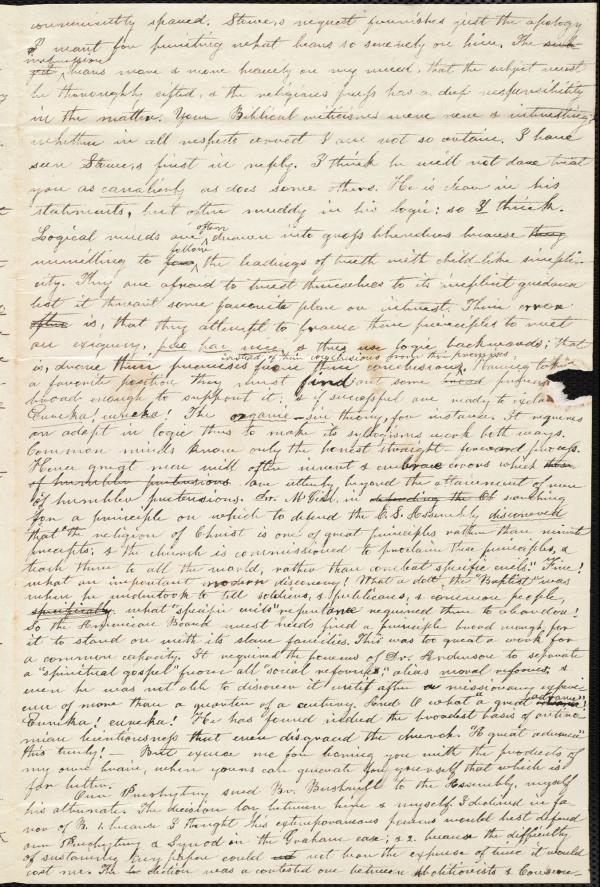 conveniently spared. Stowe's request furnishes just the apology
I meant for punishing what bears so severely on him. The
impression bears more & more heavily on my mind, that the subject must
be thoroughly sifted, & the religious press has a deep responsibility
in the matter. Your Biblical criticisms were new & interesting;
whether in all respects correct I am not so certain. I have
seen Stowe's first in reply. I think he will not dare treat
you as cavalierly as does some others. He is clear in his
statements, but often muddy in his logic: so I think.
Logical minds are often drawn into gross blunders because
unwilling to follow the leadings of truth with child-like simpli-
city. They are afraid to trust themselves to its implicit guidance
lest it thwart some favorite plan or interest. Their error
is, that they attempt to frame their principles to meet
an exigency, & they use logic backwards; that
is, draw their premises from their conclusions, instead of their conclusions from their premises. Having taken
a favorite position they must find out some principle
broad enough to support it, & if successful are ready to exclaim
Eureka! eureka! The organic-sin theory, for instance. It requires
an adept in logic thus to make its syllogisms work both ways.
Common minds know only the honest straight-forward process.
Hence great men will often invent & embrace errors which
are utterly beyond the attainment of men
of humbler pretensions. Dr. McGill, in searching
for a principle on which to defend the O.S. Assembly discovered
that "the religion of Christ is one of great principles rather than minute
precepts; & the church is commissioned to proclaim these principles, &
teach them to all the world, rather than combat specific evils." Fine!
what an important modern discovery! What a dolt "the Baptist" was
when he undertook to tell soldiers, & publicans, & common people,
what "specific evils" repentance required them to abandon!
So the American Board must needs find a principle broad enough, for
it to stand on with its slave families. This was too great a work for
a common capacity. It required the powers of Dr. Anderson to separate
a "spiritual gospel" from all "social reforms," alias moral reforms, &
even he was not able to discover it until after a missionary experi-
ence of more than a quarter of a century. And O what a great advance!
Eureka! eureka! He has found indeed the broadest basis of antino-
mian licentiousness that ever disgraced the church. "A great advance"
this truly! — But excuse me for boring you with the products of
my own brain, when yours can excavate for yourself that which is
far better.
Our Presbytery sent Br. Bushnell to the Assembly, myself
his alternate. The decision lay between him & myself. I declined in fa-
vor of B. 1. because I thought his extemporaneous powers would best defend
our Presbytery & Synod in the Graham case; & 2. because the difficulty
of sustaining my paper could not bear the expense of time it would
cost me. The election was a contested one between Abolitionists & Conserv-